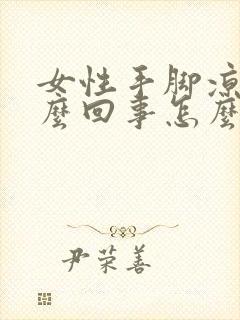 女性手脚凉
麼回事怎麼
尹荣善